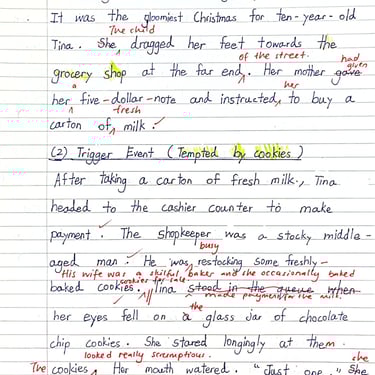 It was the gloomiest Christmas for ten-year-old
The child
Tina. She dragged her feet towards the
of the street. had
grocery shop at the far end. Her mother gave
given
a her
her five-dollar-note and instructed to buy a
fresh
carton of milk.
(2) Trigger Event (Tempted by cookies)
After taking a carton of fresh milk., Tina
headed to the cashier counter to make
payment. The shopkeeper was a stocky middle-
busy
aged man. He was restocking some freshly-
His wife was a skilful baker and she occasionally baked
cookies for sale.
baked cookies. Tina stood in the queue when
made payment for the milk.
the
her eyes fell on a glass jar of chocolate
chip cookies. She stared longingly at them.
looked really scrumptious. she
The cookies Her mouth watered. "Just one," She